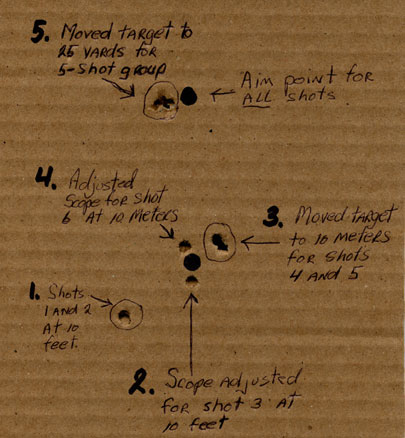 5. Moved target to
25 yards for
5-shot group
← Aim point for
ALL shots
4. Adjusted
scope for shot
6 at 10 meters
3. Moved target
to 10 meters
for shots
4 and 5
1. Shots
1 and 2
at 10
feet.
2. Scope adjusted
for shot 3 at
10 feet